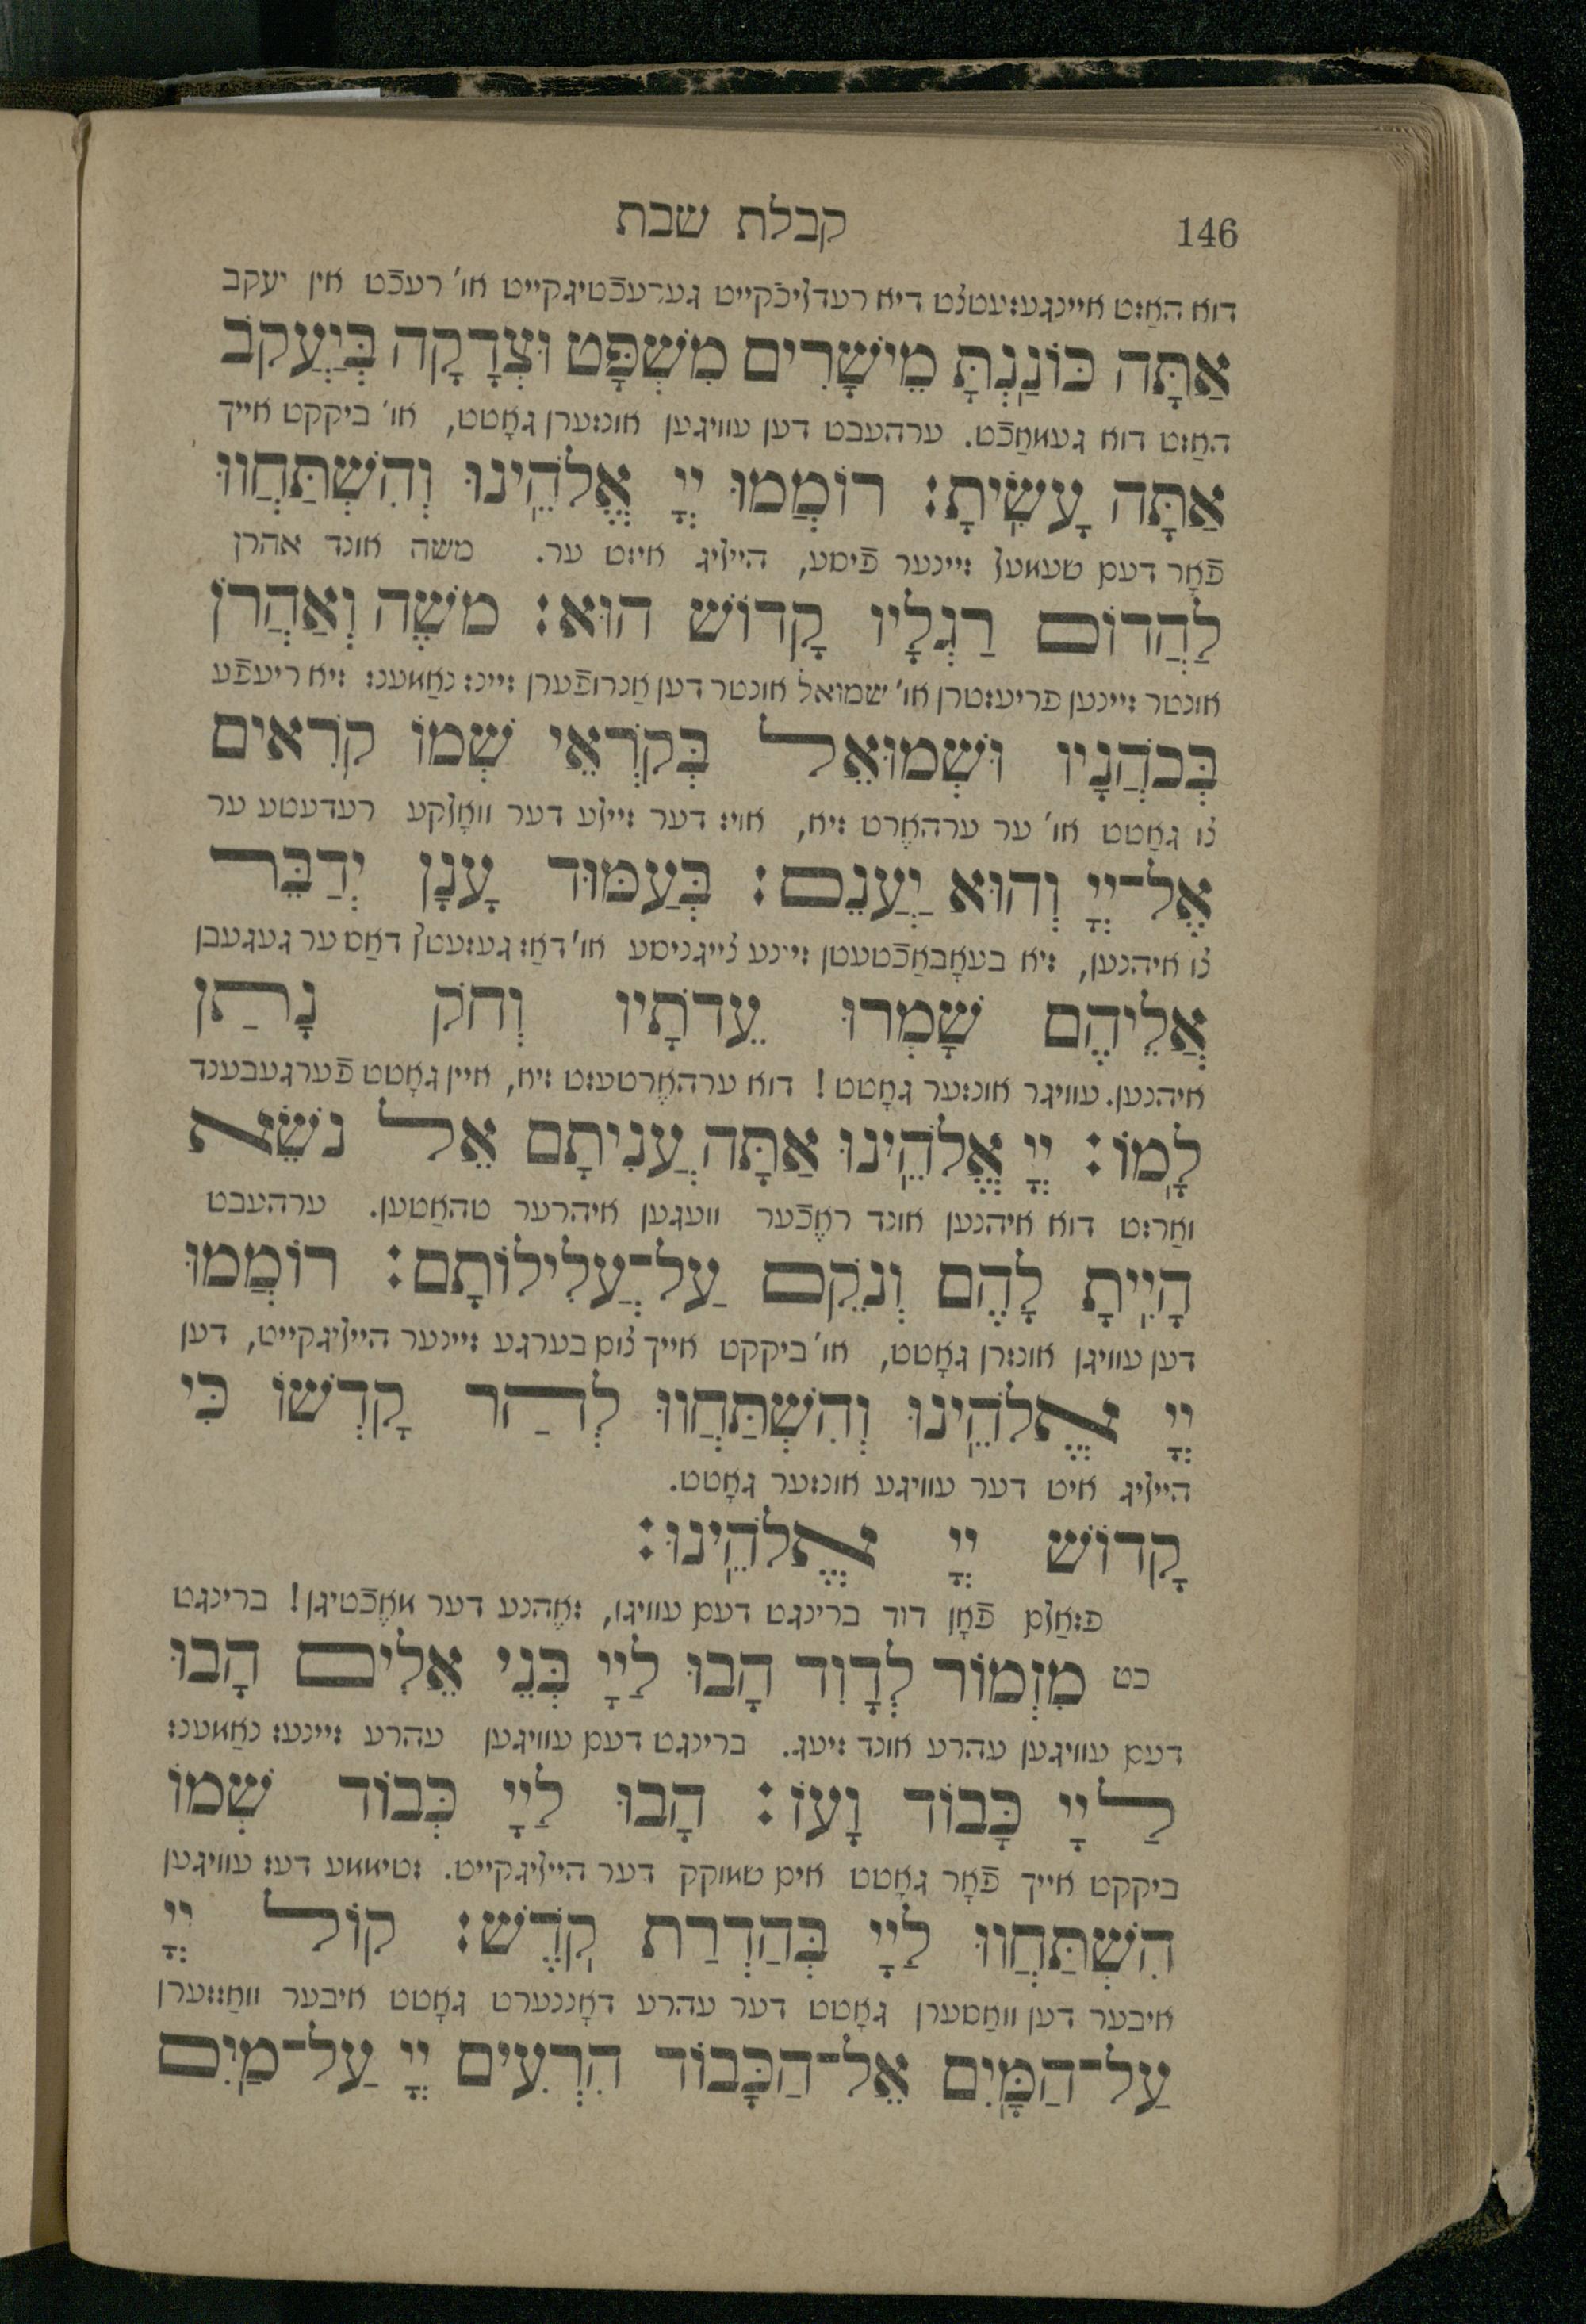 146 קבלת שבת
דוא האַזט איינגעזעטצט דיא רעדליכֿקייט גערעכֿטיגקייט או׳ רעכֿט אין יעקב
אַתָּה כּוֹנַנְתָּ מֵישָׁרִים מִשְׁפָּט וּצְדָקָה בְּיַעֲקֹב
האַזט דוא געמאַכֿט. ערהעבט דען עוויגען אונזערן גאָטט, או׳ ביקקט אייך
אַתָּה עָשִׂיתָ: רוֹמְמוּ יְיָ אֱלֹהֵינוּ וְהִשְׁתַּחֲווּ
פֿאָר דעם שעמעל זיינער פֿיסע, הייליג איזט ער. משה אונד אהרן
לַהֲדוֹם רַגְלָיו קָדוֹשׁ הוּא: מֹשֶׁה וְאַהֲרֹן
אונטר זיינען פריעזטרן או׳ שמואל אונטר דען אַנרופֿערן זיינז נאַמענז זיא ריעפֿע
בְּכֹהֲנָיו וּשְׁמוּאֵל בְּקֹרְאֵי שְׁמוֹ קֹרִאים
צו גאָטט או׳ ער ערהאֶרט זיא, אויז דער זיילע דער וואָלקע רעדעטע ער
אֶל־יְיָ וְהוּא יַעֲנֵם: בְּעַמּוּד עָנָן יְדַבֵּר
צו איהנען, זיא בעאָבאַכֿטעטן זיינע צייגניסע או׳דאַז געזעטץ דאַס ער געגעבן
אֲלֵיהֶם שָׁמְרוּ עֵדֹתָיו וְחֹק נָתַן
איהנען. עוויגר אונזער גאָטט! דוא ערהאֶרטעזט זיא, איין גאָטט פֿערגעבענד
לָמוֹ: יְיָ אֱלֹהֵינוּ אַתָּה עֲנִיתָם אֵל נֹשֵׂא
וואַרזט דוא איהנען אונד ראֶכֿער וועגען איהרער טהאַטען. ערהעבט
הָיִיתָ לָהֶם וְנֹקֵם עַל־עֲלִילוֹתָם: רוֹמְמוּ
דען עוויגן אונזרן גאָטט, או׳ ביקקט אייך צום בערגע זיינער הייליגקייט, דען
יְיָ אֱלֹהֵינוּ וְהִשְׁתַּחֲווּ לְהַר קָדְשׁוֹ כִּי
הייליג איט דער עוויגע אונזער גאָטט.
קָדוֹשׁ יְיָ אֱלֹהֵינוּ:
פזאַלם פֿאָן דוד ברינגט דעם עוויגן, זאֶהנע דער מאֶכֿטיגן! ברינגט
כט מִזְמוֹר לְדָוִד הָבוּ לַייָ בְּנֵי אֵלִים הָבוּ
דעם עוויגען עהרע אונד זיעג. ברינגט דעם עוויגען עהרע זיינעז נאַמענז
לַייָ כָּבוֹד וָעֹז: הָבוּ לַייָ כְּבוֹד שְׁמוֹ
ביקקט אייך פֿאָר גאָטט אים שמוקק דער הייליגקייט. זטיממע דעז עוויגען
הִשְׁתַּחֲווּ לַייָ בְּהַדְרַת קֹדֶשׁ: קוֹל יְיָ
איבער דען וואַסערן גאָטט דער עהרע דאָננערט גאָטט איבער וואַזזערן
עַל־הַמָּיִם אֵל־הַכָּבוֹד הִרְעִים יְיָ עַל־מַיִם